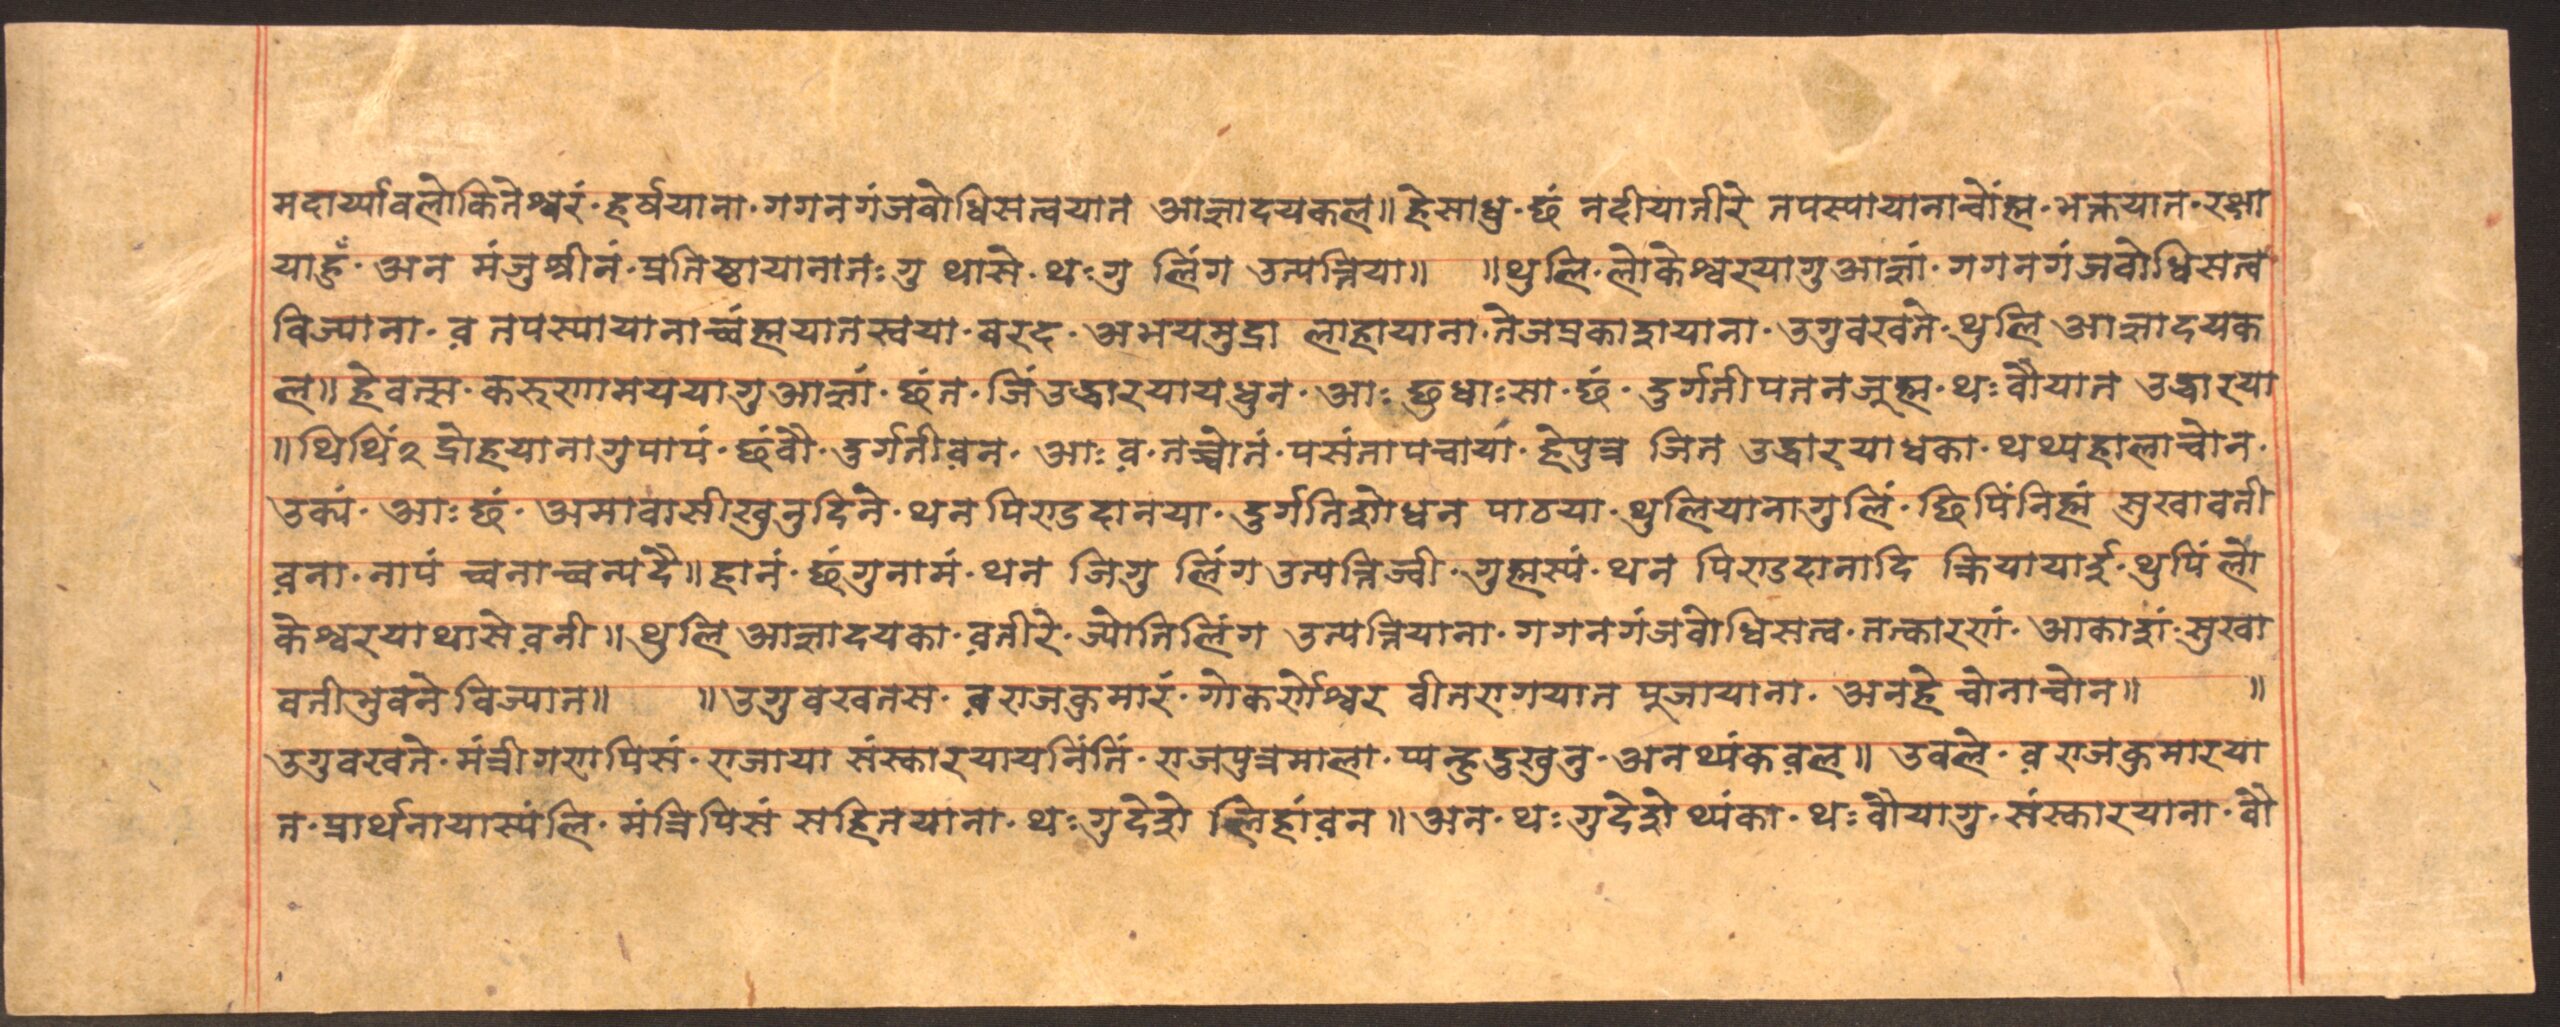 मदार्य्यावलोकितेश्वरं· हर्षयाना· गगनगंजवोधिसत्वयात आज्ञादयकल॥ हेसाधु· छं नदीयातीरे तपस्यायानाचोंह्म· भक्तयात· रक्षा
याहुँ· अन मंजुश्रीनं· प्रतिष्ठायानातःगु थासे· थःगु लिंग उत्पत्तिया॥ ॥थुलि· लोकेश्वरयागुआज्ञां· गगनगंजवोधिसत्व
विज्याना· व़ तपस्यायानाच्वंह्मयातस्वया· वरद· अभयमुद्रा लाहायाना· तेजप्रकाशयाना· उगुवखते· थुलि आज्ञादयक
ल॥ हेवत्स· करुणामययागुआज्ञां· छंत· जिंउद्धारयायधुन· आः छुधाःसा· छं· दुर्गतीपतनजूह्म· थःवौयात उद्धारया
॥थिथिं२ द्रोहयानागुपापं· छंवौ· दुर्गतीव़न· आः व़· नच्चोनं· पसंतापचाया· हेपुत्र जित उद्धारयाधका· थथ्यहालाचोन·
उक्यं· आः छं· अमावासीखुनुदिने· थन पिण्डदानया· दुर्गतिशोधन पाठया· थुलियानागुलिं· छिपिंनिह्मं सुखावती
व़ना· नापं च्वनाच्वन्यदै॥ हानं· छंगुनामं· थन जिगु लिंगउत्पत्तिज्वी· गुह्मस्यं· थन पिण्डदानादि क्रियायाई· थुपिं लो
केश्वरयाथासे व़नी॥ थुलि आज्ञादयका· व़तीरे· ज्योतिलिंग उत्पत्तियाना· गगनगंजवोधिसत्व· तत्कारणं· आकाशं· सुखा
वतीभुवने विज्यात॥ ॥उगुवखतस· व़ राजकुमारं· गोकर्णेश्वर वीतरागयात पूजायाना· अनहे चोनाचोन॥ ॥
उगुवखते· मंत्रीगणपिसं· राजाया संस्कारयायनिंतिं· राजपुत्रमाला· प्यन्हुदुखुनु· अनथ्यंकव़ल॥ उवले· व़ राजकुमारया
त· प्रार्थनायास्यंलि· मंत्रिपिसं सहितयाना· थःगुदेशे लिहांव़न॥ अन· थःगुदेशे थ्यंका· थःवौयागु· संस्कारयाना· वौ